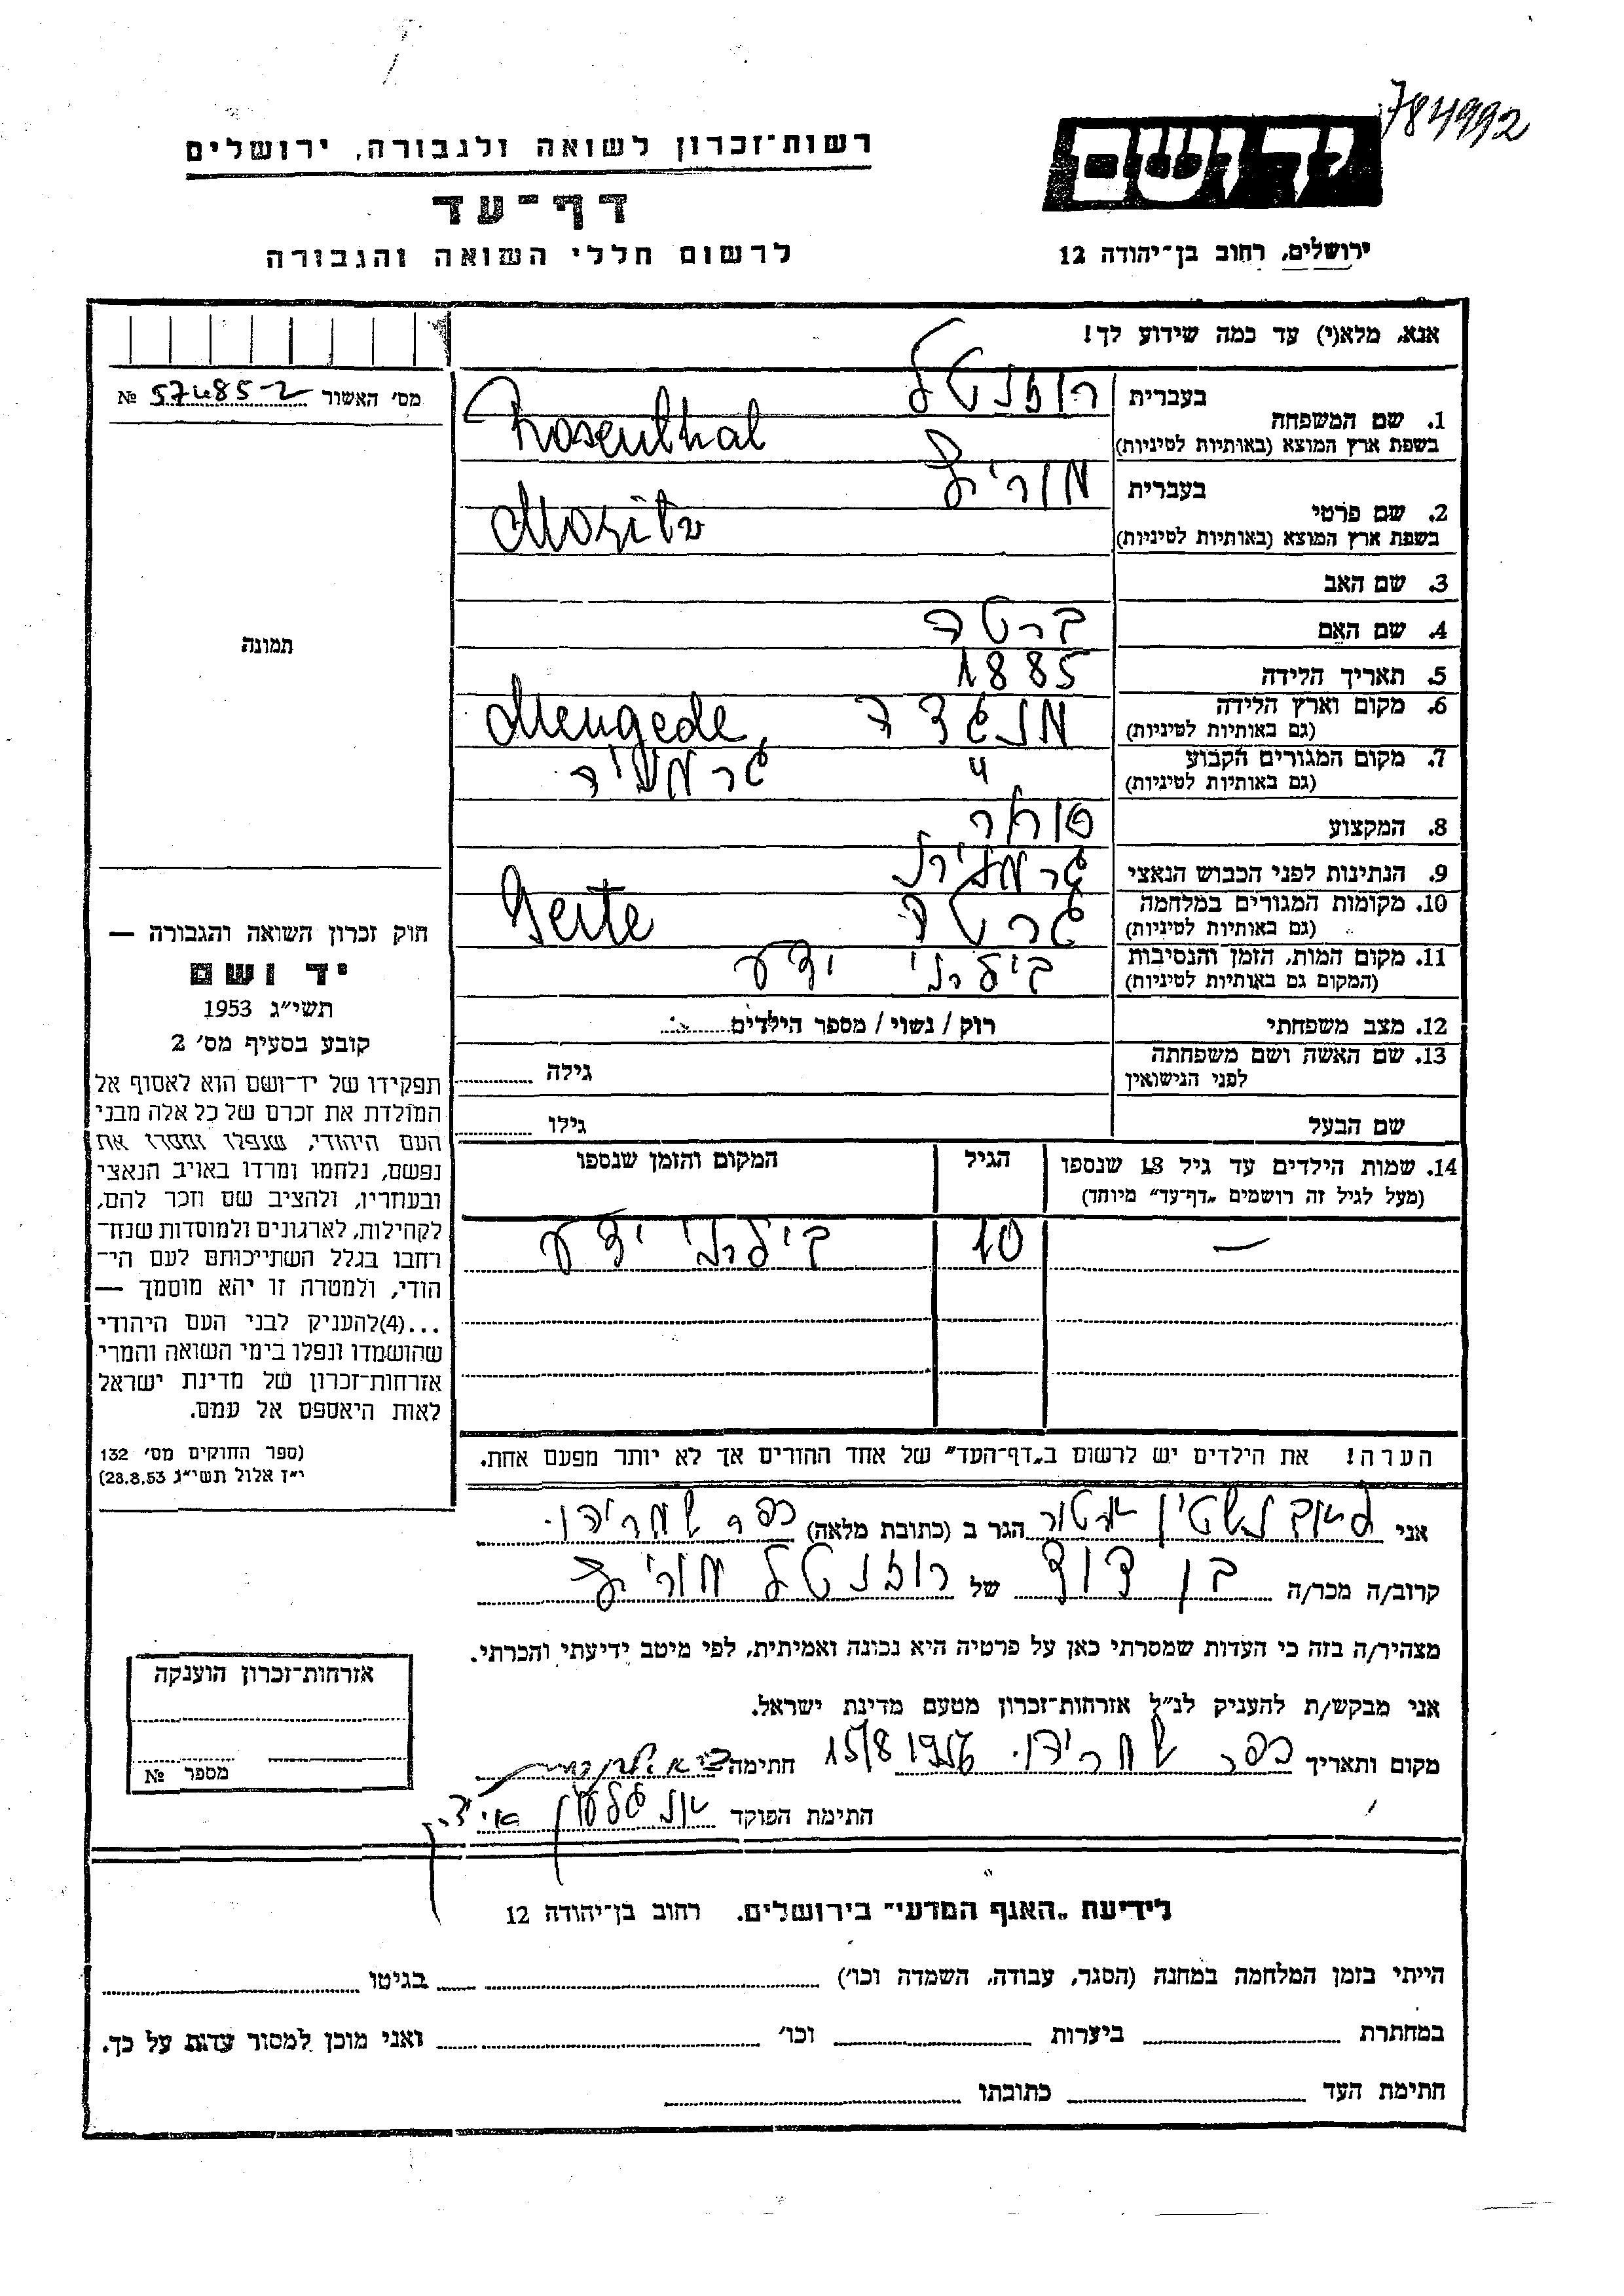 784992
יד ושם
ירושלים, רחוב בן־יהודה 12
רשות־זכרון לשואה ולגבורה, ירושלים
דף־עד
לרשום חללי השואה והגבורה
אנא, מלא(י) עד כמה שידוע לך!
מס׳ האשור 57485-2 №
תמונה
1. שם המשפחה
בעברית רוזנטל
בשפת ארץ המוצא (באותיות לטיניות) Rosenthal
2. שם פרטי
בעברית מוריץ
בשפת ארץ המוצא (באותיות לטיניות) Moritz
3. שם האב
4. שם האם ברטה
5. תאריך הלידה 1885
6. מקום וארץ הלידה מנגדה Mengede,
(גם באותיות לטיניות)
7. מקום המגורים הקבוע " גרמניה
(גם באותיות לטיניות)
8. המקצוע סוחר
9. הנתינות לפני הכבוש הנאצי גרמנית
10. מקומות המגורים במלחמה
(גם באותיות לטיניות)
11. מקום המות, הזמן והנסיבות בילתי ידע
(המקום גם באותיות לטיניות)
12. מצב משפחתי רוק / נשוי / מספר הילדים
13. שם האשה ושם משפחתה גילה
לפני הנישואין
שם הבעל גילו
14. שמות הילדים עד גיל 18 שנספו הגיל המקום והזמן שנספו
(מעל לגיל זה רושמים „דף־עד" מיוחד)
— 10 בילתי ידע
הערה! את הילדים יש לרשום ב„דף־העד" של אחד ההורים אך לא יותר מפעם אחת.
חוק זכרון השואה והגבורה —
יד ושם
תשי״ג 1953
קובע בסעיף מס׳ 2
תפקידו של יד־ושם הוא לאסוף אל
המולדת את זכרם של כל אלה מבני
העם היהודי, שנפלו ומסרו את
נפשם, נלחמו ומרדו באויב הנאצי
ובעוזריו, ולהציב שם וזכר להם,
לקהילות, לארגונים ולמוסדות שנח־
רחבו בגלל השתייכותם לעם הי־
הודי, ולמטרה זו יהא מוסמך —
...(4)להעניק לבני העם היהודי
שהושמדו ונפלו בימי השואה והמרי
אזרחות־זכרון של מדינת ישראל
לאות היאספם אל עמם.
(ספר החוקים מס׳ 132
י״ז אלול תשי״ג 28.8.53)
אני הגר ב (כתובת מלאה) כפר שמריהו.
קרוב/ה מכר/ה בן דוד של רוזנטל מוריץ
מצהיר/ה בזה כי העדות שמסרתי כאן על פרטיה היא נכונה ואמיתית, לפי מיטב ידיעתי והכרתי.
אני מבקש/ת להעניק לנ״ל אזרחות־זכרון מטעם מדינת ישראל.
מקום ותאריך כפר שמריהו. 15/8 1956 חתימה
חתימת הפוקד
אזרחות־זכרון הוענקה
מספר №
לידיעת „האגף המדעי" בירושלים. רחוב בן־יהודה 12
הייתי בזמן המלחמה במחנה (הסגר, עבודה, השמדה וכו׳) בגיטו
במחתרת ביערות וכו׳ ואני מוכן למסור עדות על כך.
חתימת העד כתובתו